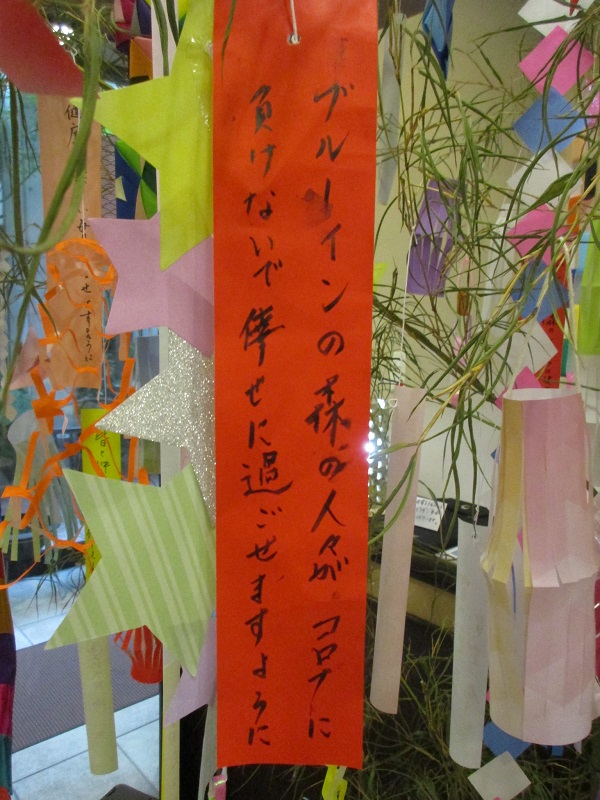 ブルーインの森の人々が コロナに
負けないで 倖せに過ごせますように
せますように